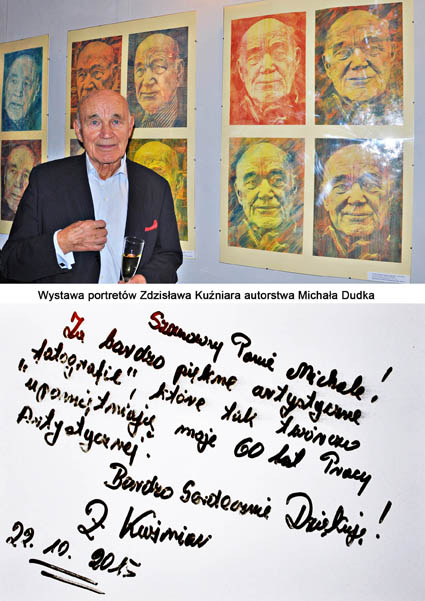 Wystawa portretów Zdzisława Kuźniara autorstwa Michała Dudka
Szanowny Panie Michale!
Za bardzo piękne artystyczne
"fotografie", które tak twórczo
upamiętniają moje 60 lat Pracy
Artystycznej".
Bardzo Serdecznie Dziękuję!
Z. Kuźniar
22. 10. 2015